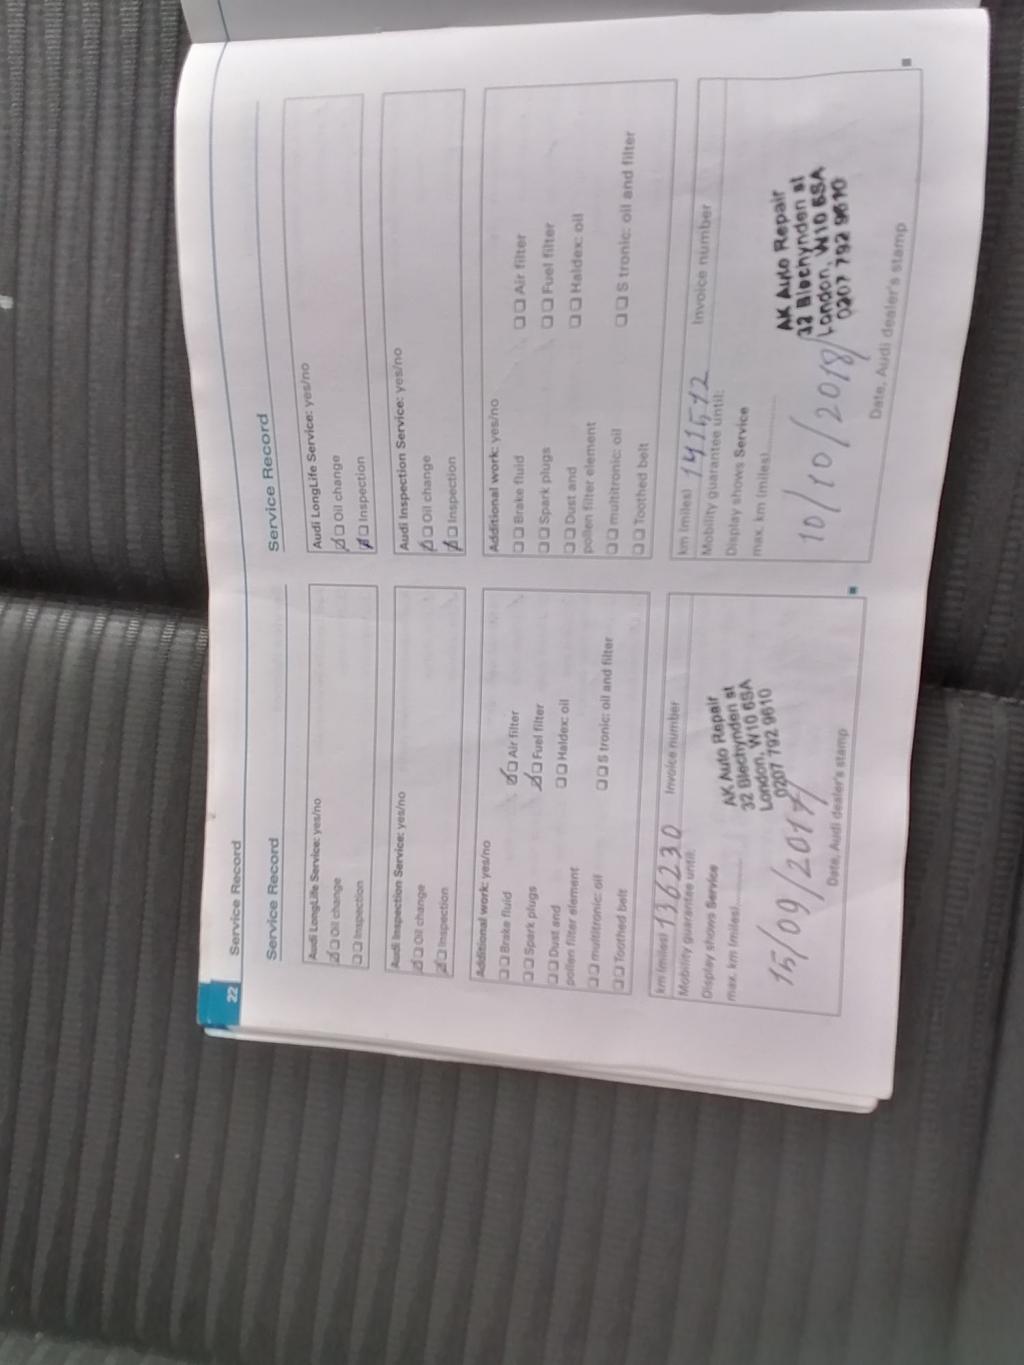 22 Service Record
Service Record
Audi LongLife Service: yes/no
Oil change
Inspection
Audi Inspection Service: yes/no
Oil change
Inspection
Additional work: yes/no
Brake fluid
Air filter
Spark plugs
Fuel filter
Dust and
pollen filter element
Haldex: oil
multitronic: oil
S tronic: oil and filter
Toothed belt
km (miles) 136230 Invoice number
Mobility guarantee until:
Display shows Service
max. km (miles)
AK Auto Repair
32 Blechynden st
London, W10 6SA
0207 792 9610
15/09/2017
Date, Audi dealer's stamp
Service Record
Audi LongLife Service: yes/no
Oil change
Inspection
Audi Inspection Service: yes/no
Oil change
Inspection
Additional work: yes/no
Brake fluid
Air filter
Spark plugs
Fuel filter
Dust and
pollen filter element
Haldex: oil
multitronic: oil
S tronic: oil and filter
Toothed belt
km (miles) 141512 Invoice number
Mobility guarantee until:
Display shows Service
max. km (miles)
AK Auto Repair
32 Blechynden st
London, W10 6SA
0207 792 9610
10/10/2018
Date, Audi dealer's stamp